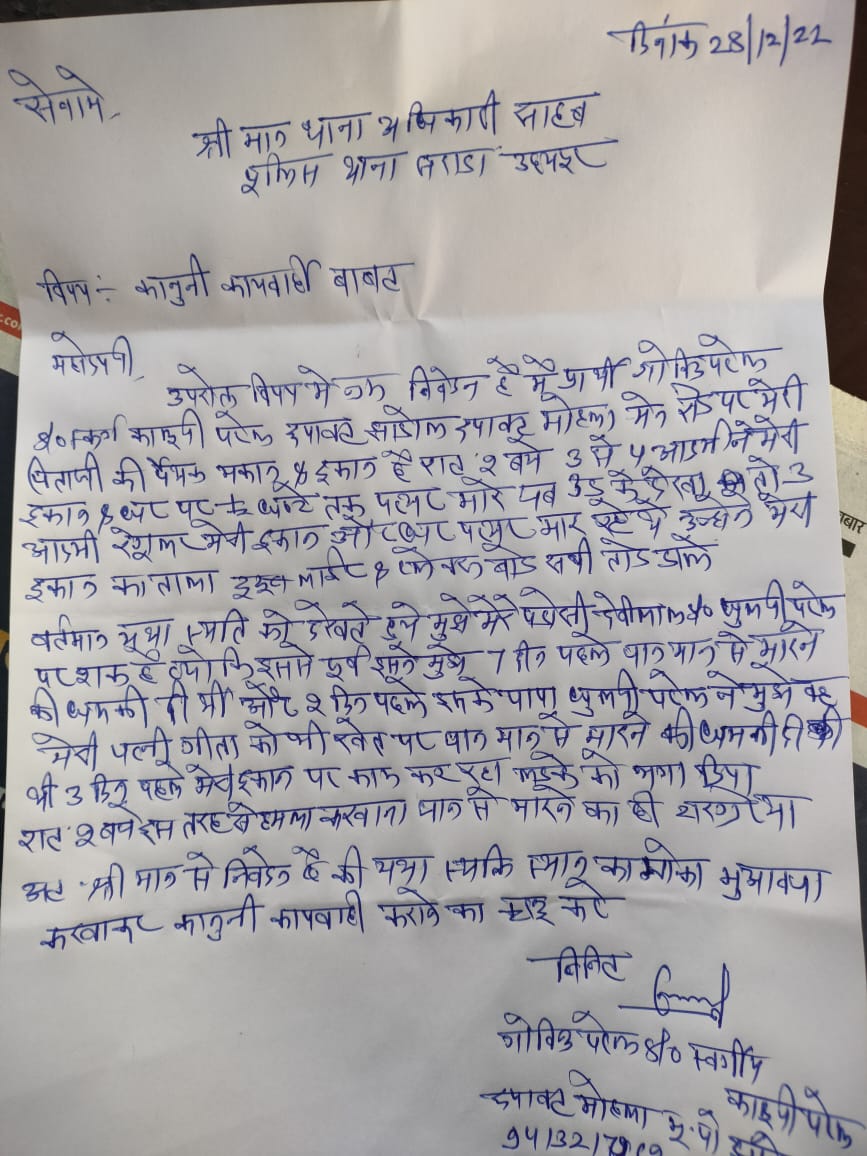 दिनांक 28/12/22
सेवामे,
श्री मान थाना अधिकारी साहब
पुलिस थाना सराडा उदयपुर
विषय :- कानुनी कायवाही बाबत
महोदयजी,
उपरोक्त विषय मे नम्र निवेदन है मै प्रार्थी गोविन्द पटेल
s/o स्वर्ग कालुजी पटेल मोहला मेन रोड पर मेरी
पिताजी की पैतृक मकान & दुकान है रात: 2 बजे 3 से 4 आदमी ने मेरी
दुकान & घर पर घण्टे तक पत्थर मारे जब उठ के देखा तो 3
आदमी मेरी दुकान और घर पत्थर मार रहे थे उन्होने मेरी
दुकान का ताला लाईट & बोड सभी तोड डाले
वर्तमान यथा स्थति को देखते हुये मुझे मेरे पडोसी देवीलाल s/o पटेल
पर शक है क्यो कि इससे पूर्व इसने मुझे 7 दिन पहले जान मान से मारने
की धमकी दी थी और 2 दिन पहले इसके पापा पटेल ने मुझे वह
मेरी पत्नी गीता को भी खेत पर जान मान से मारने की धमकी दी
थी 3 दिन पहले मेरी दुकान पर काम कर रहा लडके को भगा दिया
रात: 2 बजे इस तरह से हमला करवाना जान से मारने का ही था
अत: श्री मान से निवेदन है की यथा स्थति स्थान का मोका मुआवजा
करवाकर कानुनी कायवाही कराने का करे
विनित
गोविन्द पटेल s/o स्वर्गीय
कालुजी पटेल
मोहला मु. पो